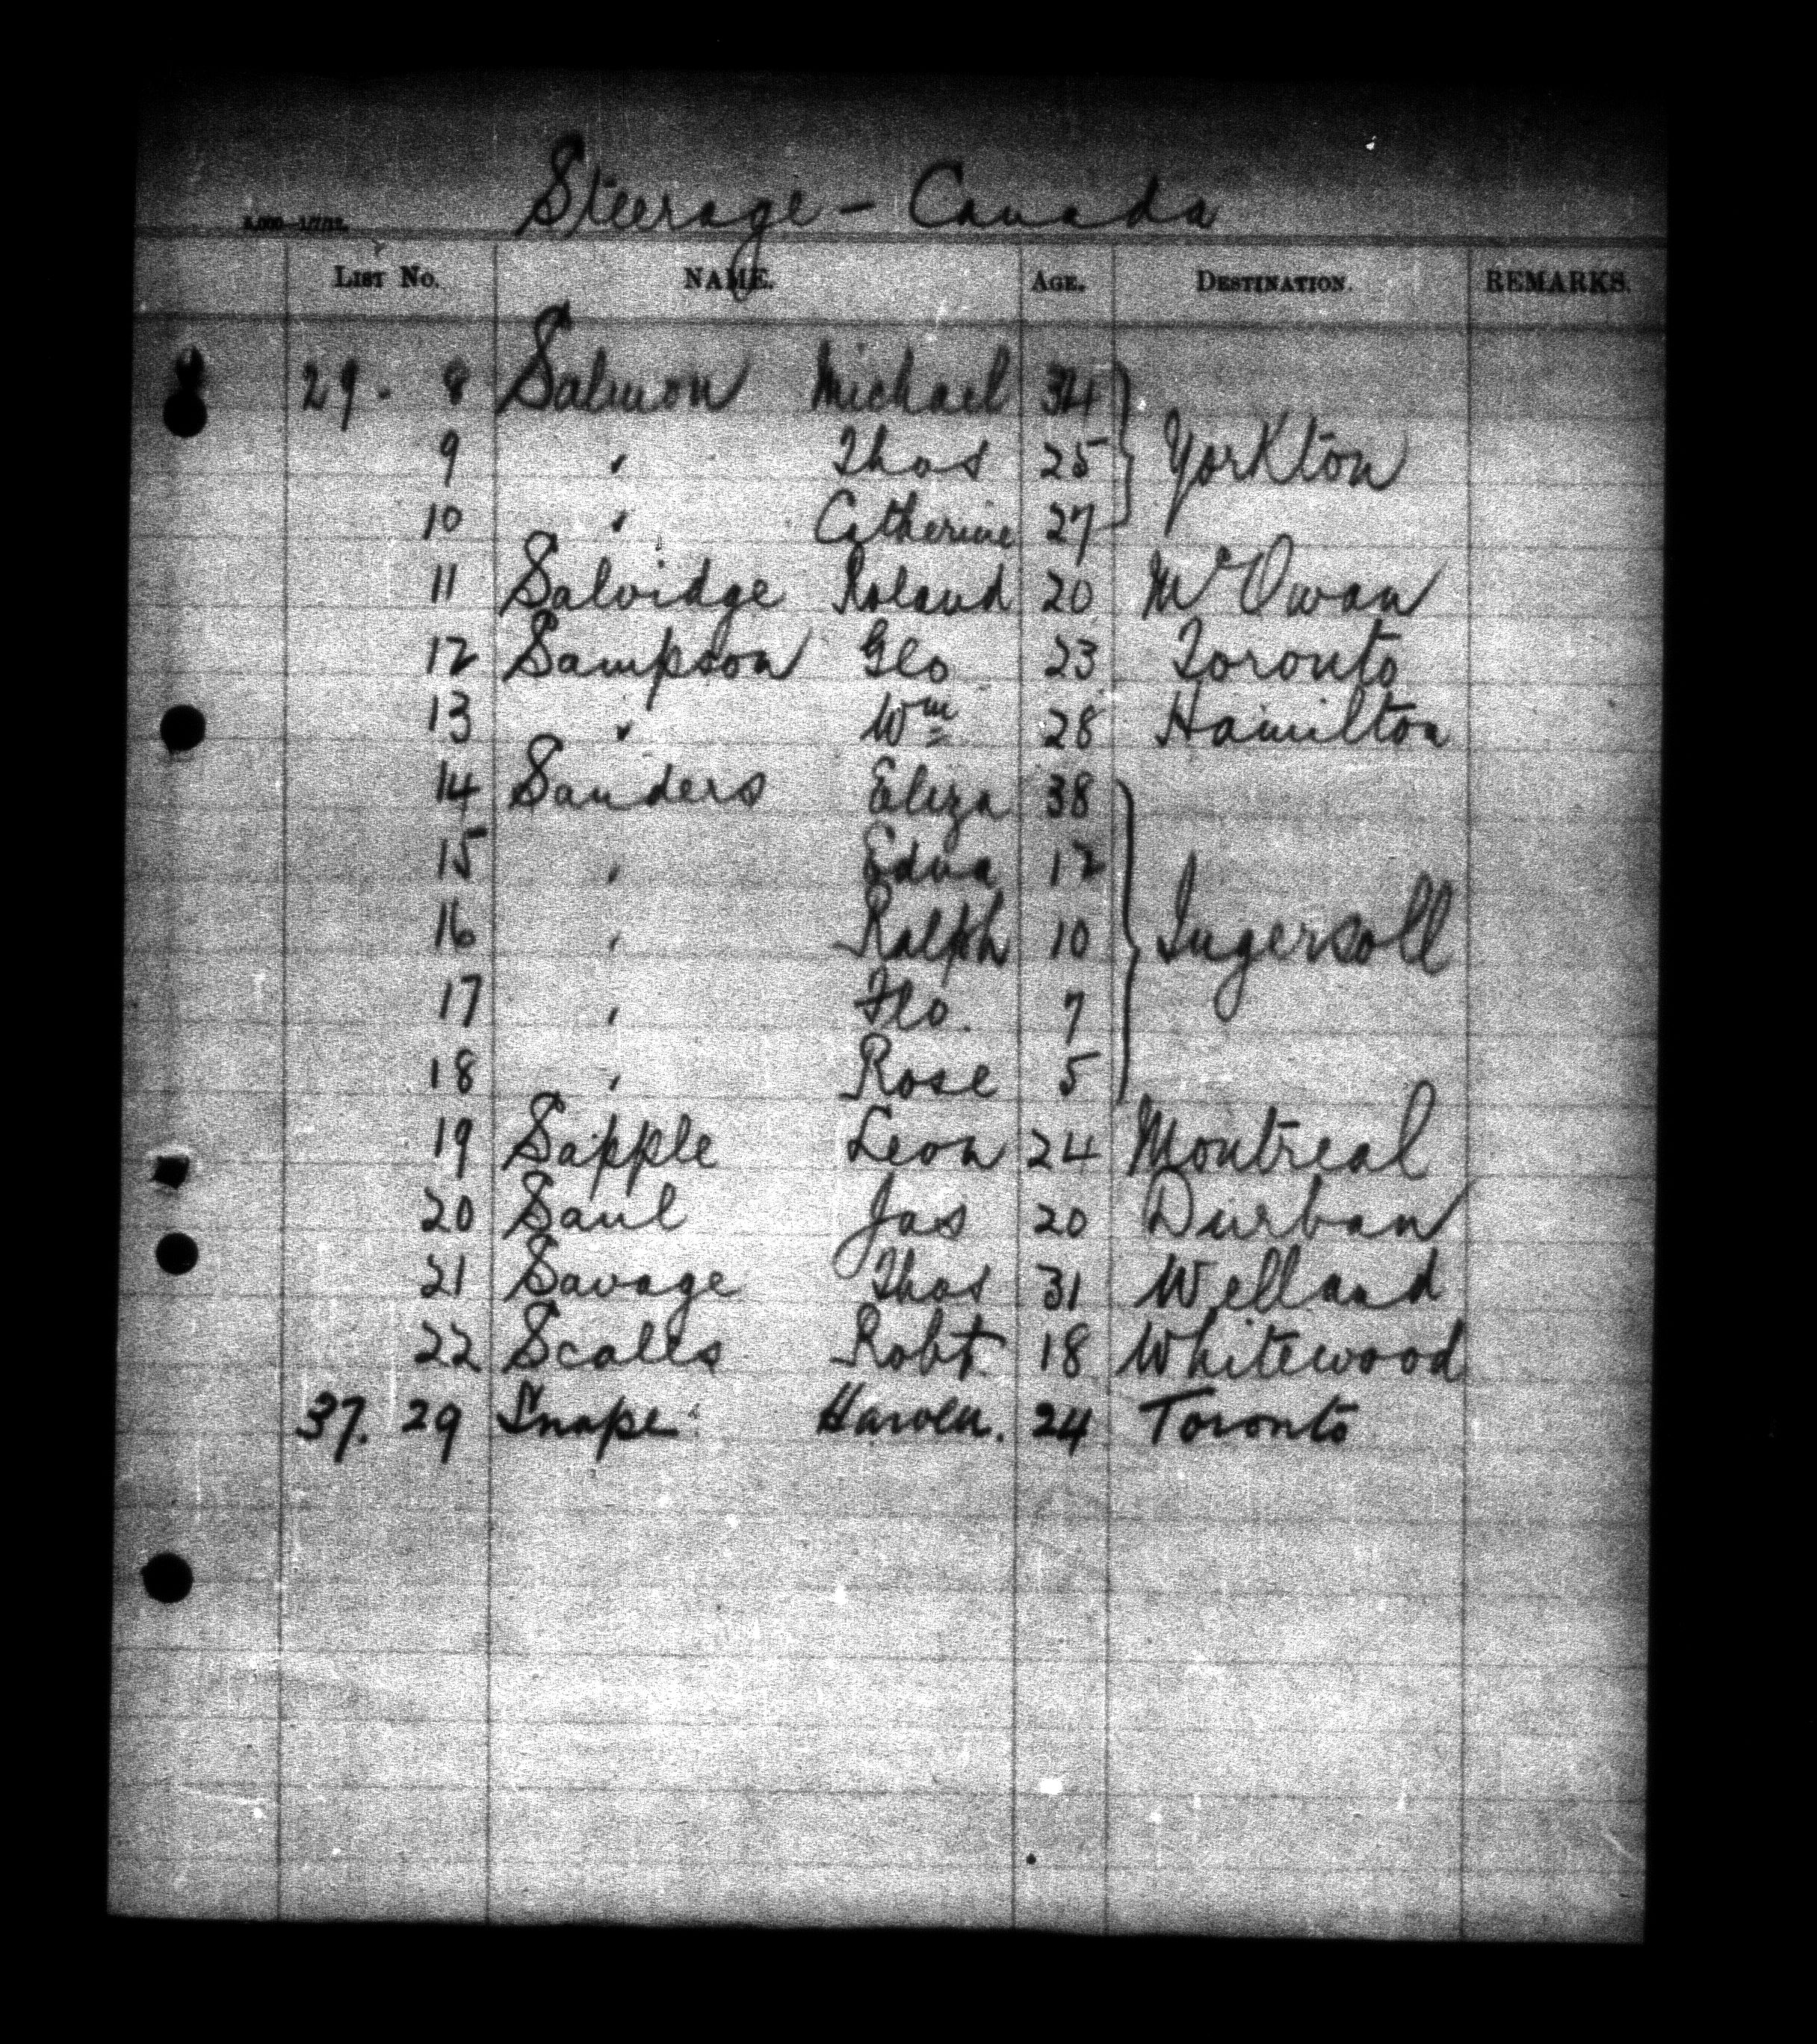 Steerage - Canada
5,000-1/7/12.
LIST NO. NAME. AGE. DESTINATION. REMARKS.
29. 8 Salmon Michael 34
9 " Thos 25 Yorkton
10 " Catherine 27
11 Salvidge Roland 20 McOwan
12 Sampson Geo 23 Toronto
13 " Wm 28 Hamilton
14 Sanders Eliza 38
15 " Edna 12
16 " Ralph 10 Ingersoll
17 " Flo. 7
18 " Rose 5
19 Sapple Leon 24 Montreal
20 Saul Jas 20 Durban
21 Savage Thos 31 Welland
22 Scales Robt. 18 Whitewood
37. 29 Snape 24 Toronto